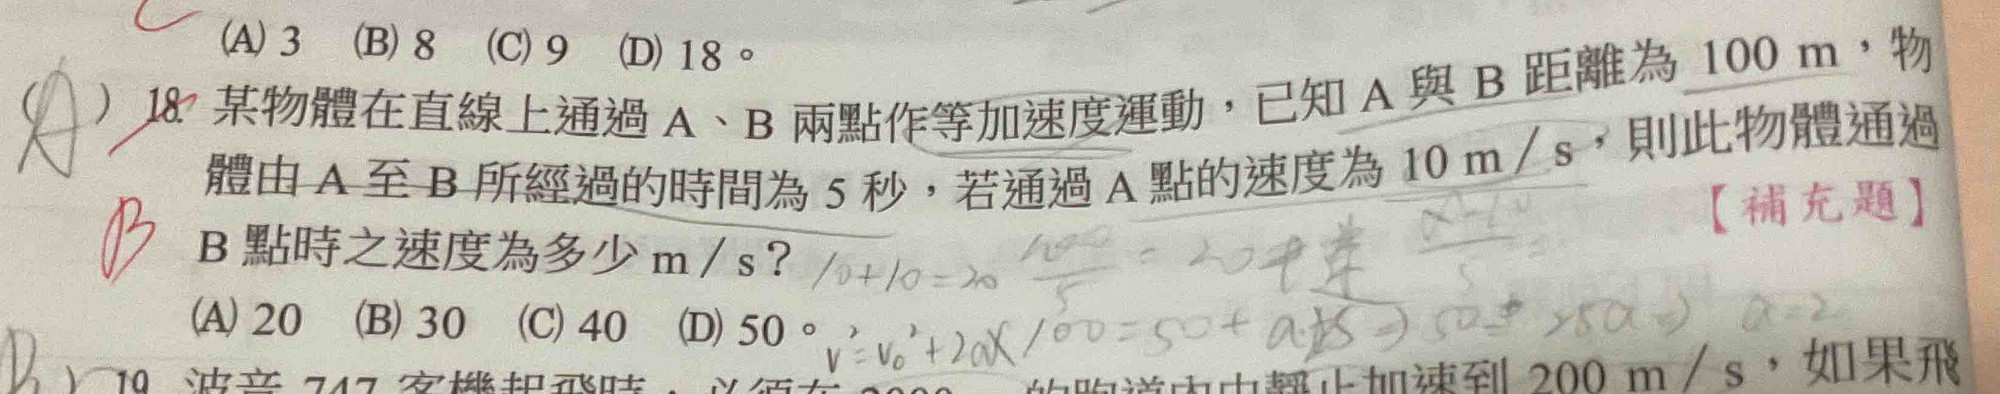 (A) 3 (B) 8 (C) 9 (D) 18。
(A) 18. 某物體在直線上通過 A、B 兩點作等加速度運動，已知 A 與 B 距離為 100 m，物
體由 A 至 B 所經過的時間為 5 秒，若通過 A 點的速度為 10 m／s，則此物體通過
B B 點時之速度為多少 m／s？ 10+10=20 100/5 = 20 【補充題】
(A) 20 (B) 30 (C) 40 (D) 50。 v²=v₀²+2ax 100=50+ a=2
19. 波音 747 客機起飛時，必須在 2000 的跑道內由靜止加速到 200 m／s，如果飛